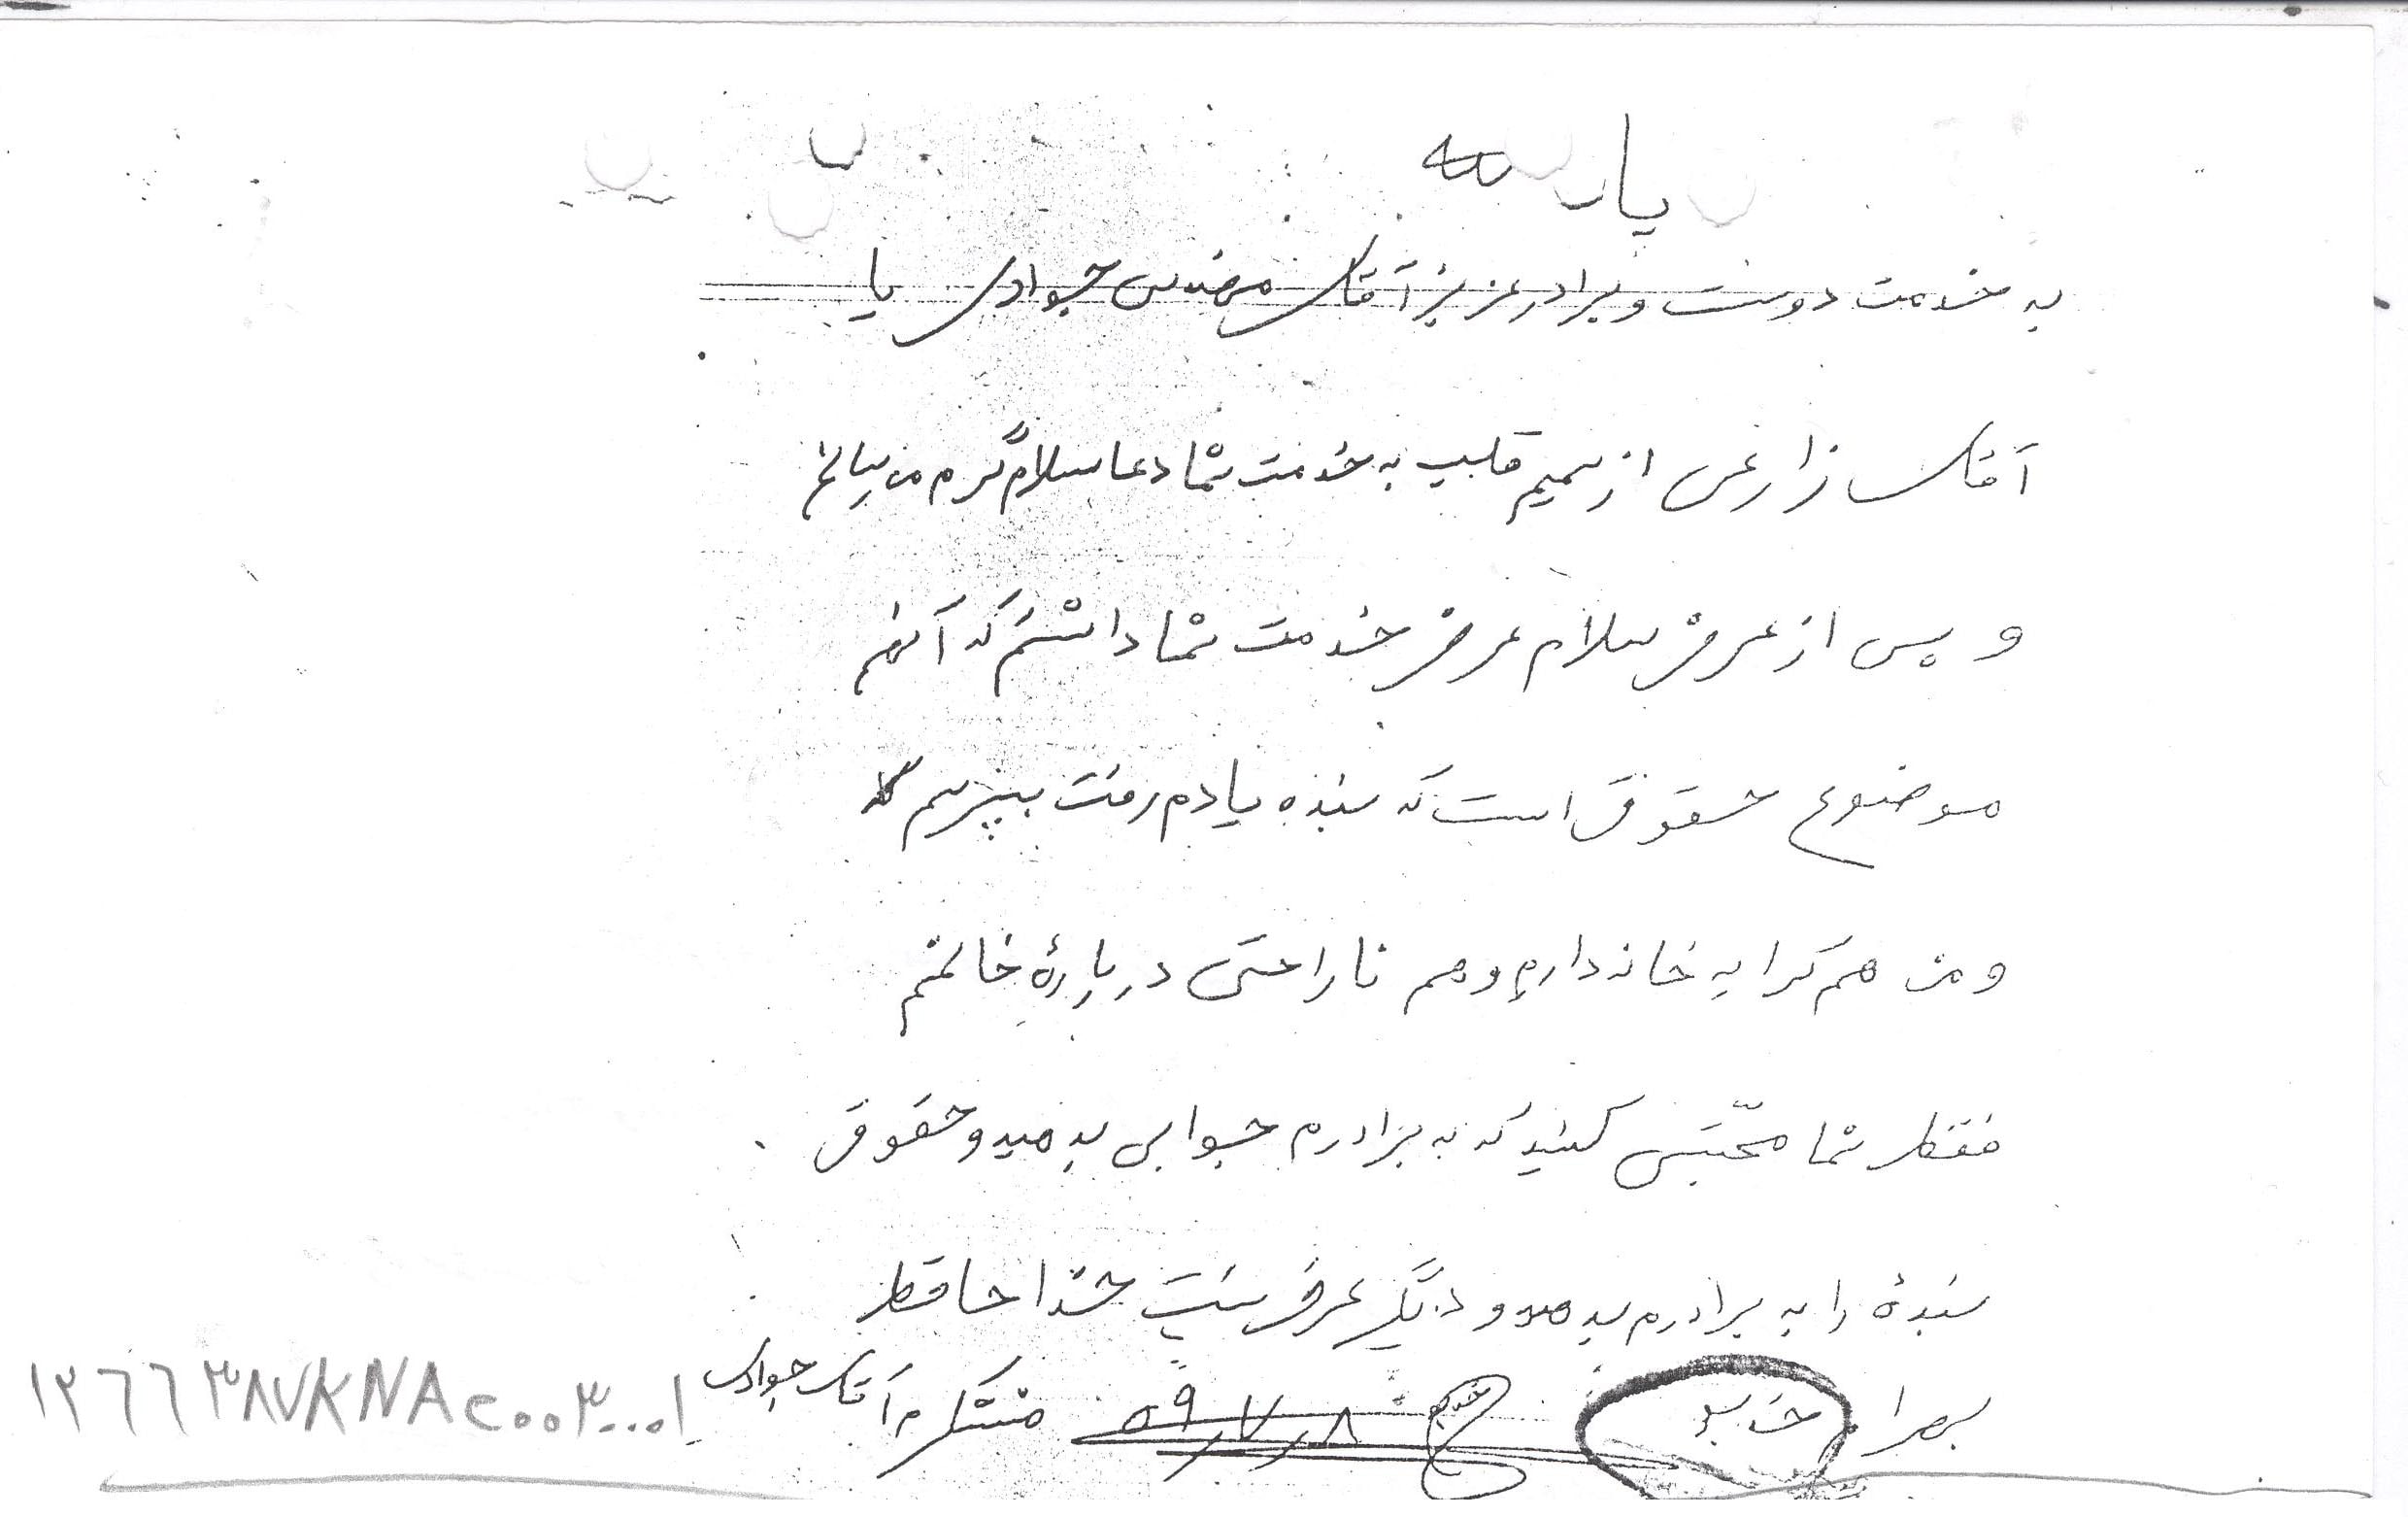 به خدمت دوست و برادر عزیز آقای مهندس جوادی یا
آقای زارعی از صمیم قلب به خدمت شما دعا سلام گرم می‌رسانم
و پس از عرض سلام عرض خدمت شما داشتم که آنهم
موضوع حقوق است که بنده یادم رفت بپرسم که
و من هم کرایه خانه دارم و هم ناراحتی دربارهٔ خانمم
فقط شما محبّتی کنید که به برادرم جوابی بدهید و حقوق
بندهٔ را به برادرم بدهد و دیگر عرضی نیست خدا حافظ
۵۹/۷/۸ متشکرم آقای جوادی
۱۳۶۶۳۸۷KNA۲۰۰۳۰۰۰۱